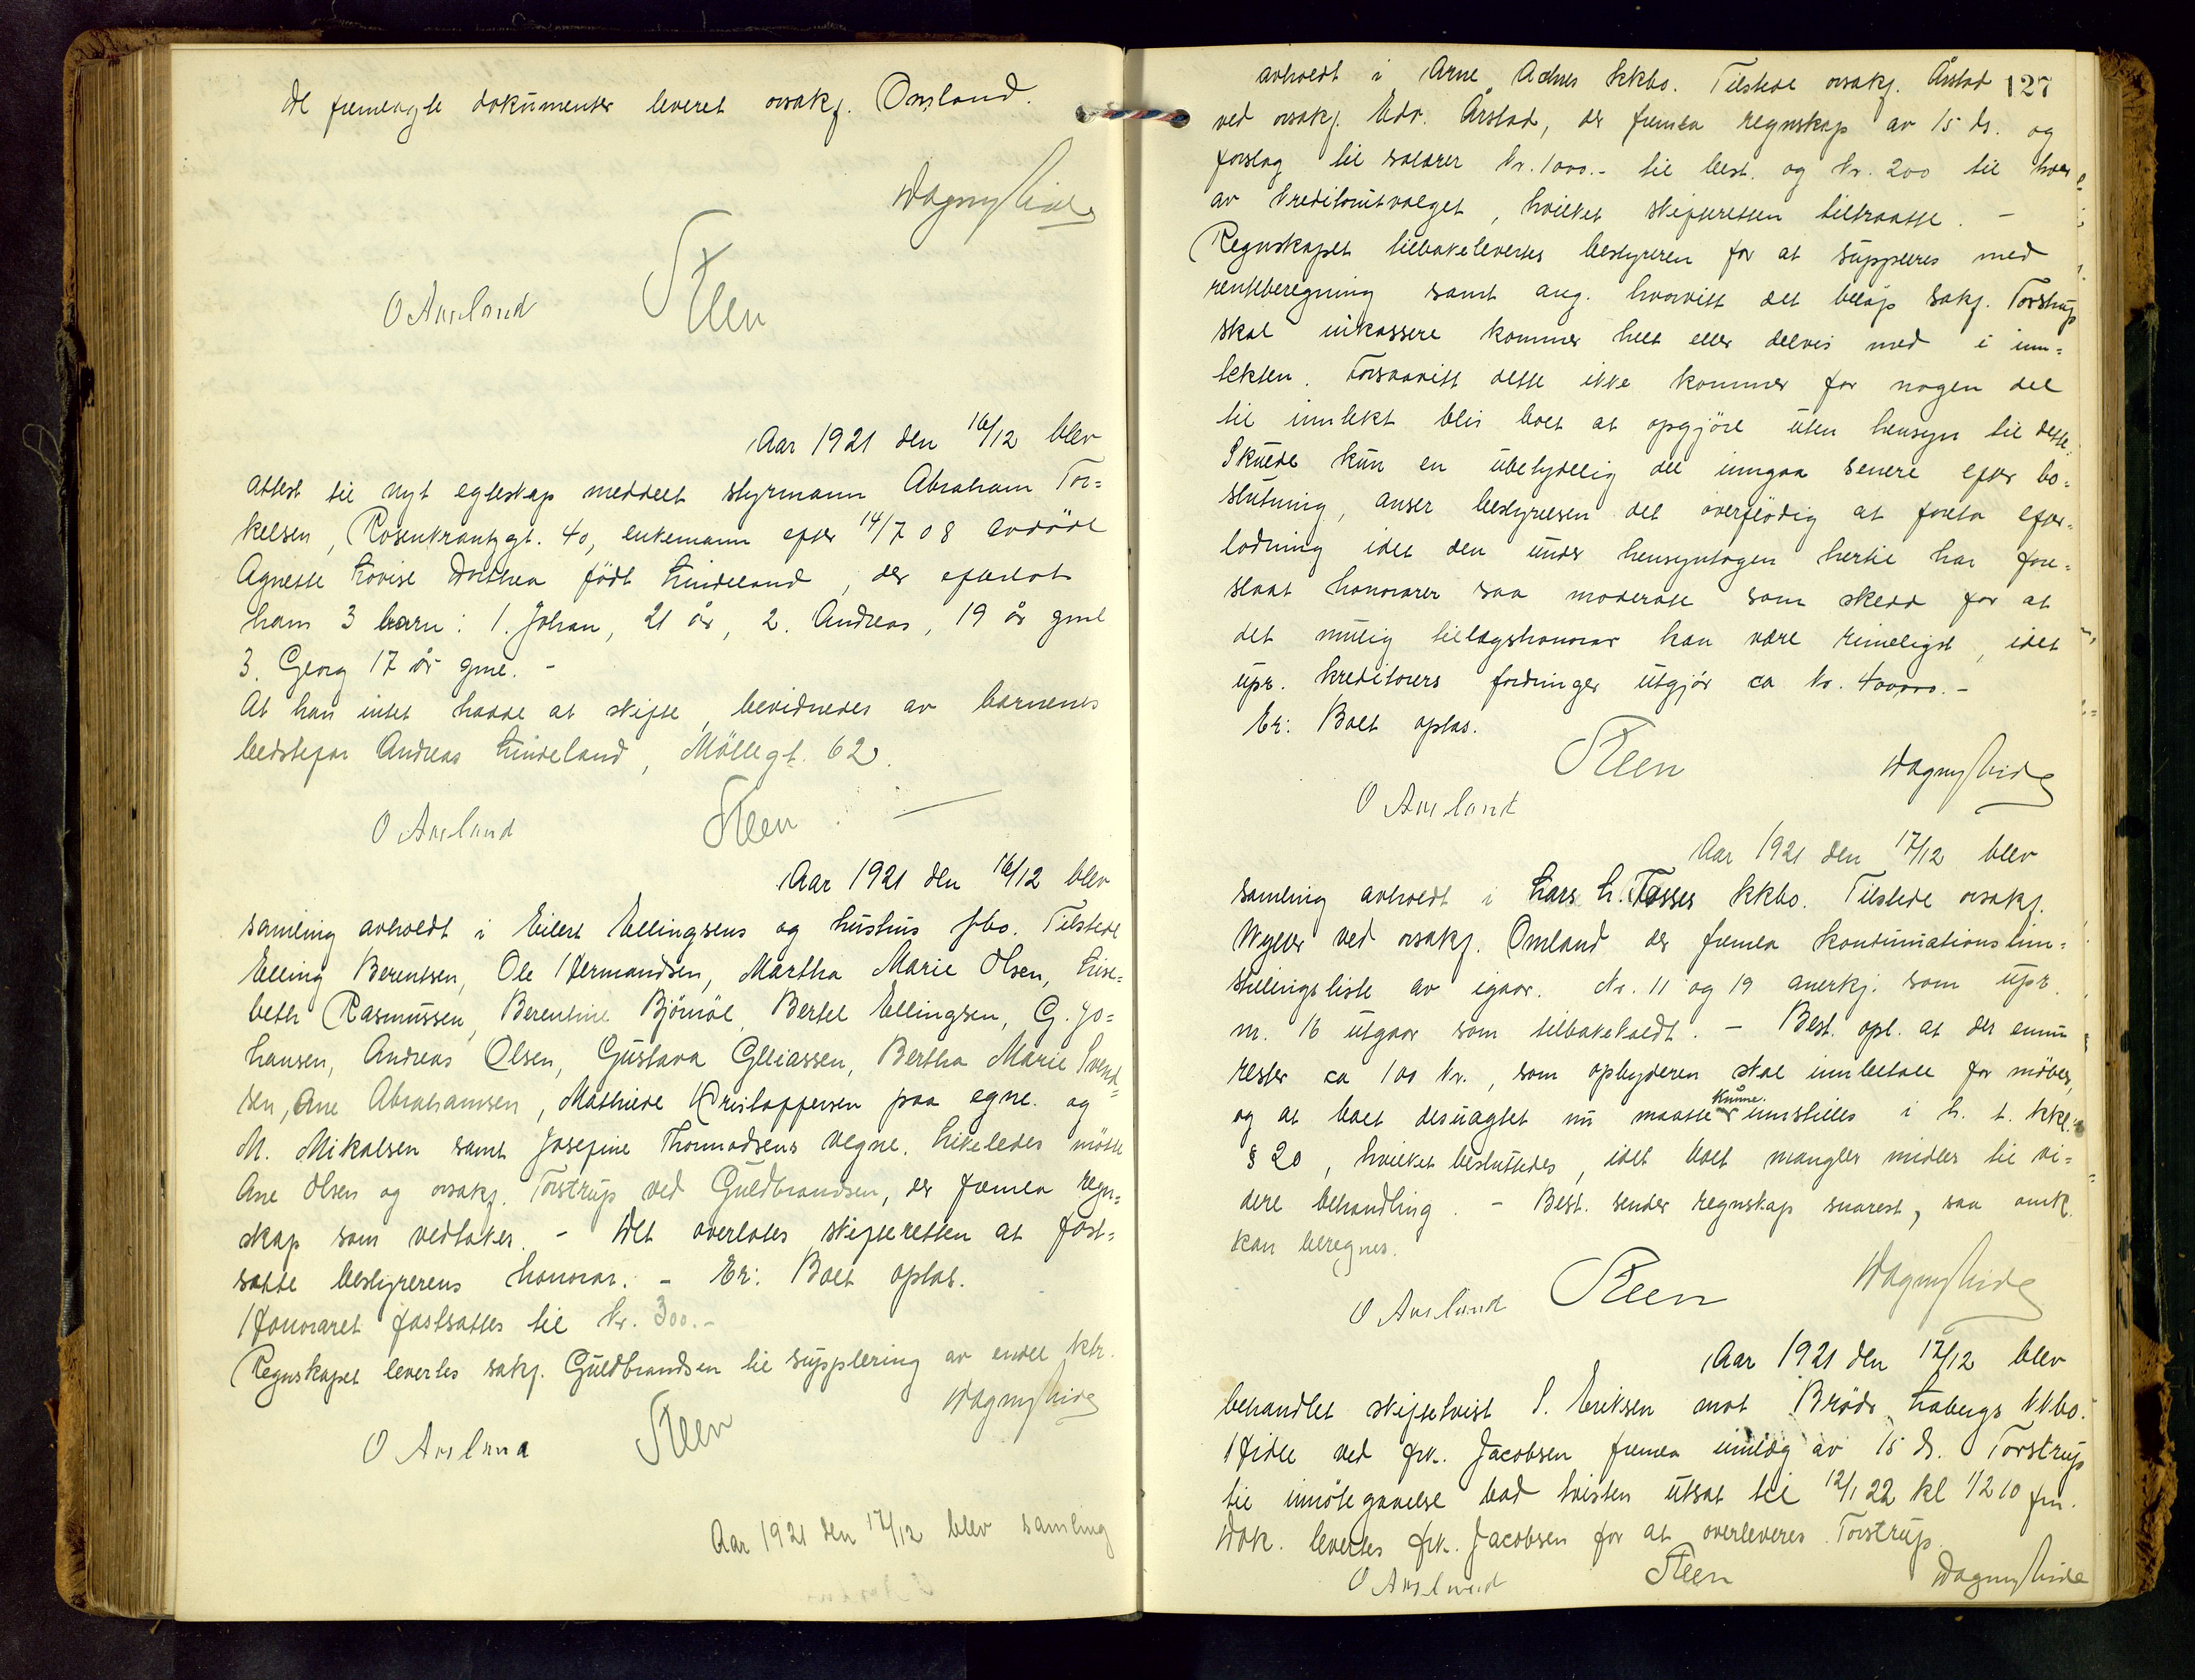 De fremlagte dokumenter leveret osakf. Omland.
Dagny Lide
Steen
O Ausland
Aar 1921 den 16/12 blev
attest til nyt egteskap meddelt styrmann Abraham Tor=
kelsen, Rosenkrantzgt. 40, enkemann efter 14/7 08 avdöde
Agnethe Lovise Dorthea födt Lindeland, der efterlot
ham 3 barn: 1. Johan, 21 år, 2. Andreas, 19 år gml
3. Georg 17 år gml. -
At han intet hadde at skifte, bevidnedes av barnenes
bedstefar Andreas Lindeland, Möllegt. 62.
O Ausland
Steen
Aar 1921 den 16/12 blev
samling avholdt i Eilert Ellingsens og hustrus fbo. Tilstede
Elling Berentsen, Ole Hermandsen, Martha Marie Olsen, Lise=
beth Rasmussen, Berentine Bjönnöl, Bertel Ellingsen, G. Jo=
hansen, Andreas Olsen, Gustava Eliassen, Bertha Marie Svend=
sen, Ane Abrahamsen, Mathilde Kristoffersen paa egne og
M. Mikalsen samt Josefine Thormodsens vegne. Likeledes mötte
Ane Olsen og osakf. Torstrup ved Guldbrandsen, der fremla regn=
skap som vedtokes. - Det overlotes skifteretten at fast=
satte bestyrerens honorar. - Er: Boet oplat.
Honoraret fastsattes til kr. 300.-
Regnskapet levertes sakf. Guldbrandsen til supplering av endel ktr.
Dagny Lide
O Ausland
Steen
Aar 1921 den 17/12 blev samling
127
avholdt i Arne Adnes kkbo. Tilstede osakf. Årstad
ved osakf. Edv. Årstad, der fremla regnskap av 15 ds. og
forslag til salærer kr. 1000.- til best. og kr. 200 til hver
av kreditorutvalget, hvilket skifteretten tiltraatte. -
Regnskapet tilbakelevertes bestyreren for at suppleres med
renteberegning samt ang. hvorvitt det belöp sakf. Torstrup
skal inkassere kommer helt eller delvis med i inn=
tekten. Forsaavitt dette ikke kommer for nogen del
til inntekt blir boet at opgjöre uten hensyn til dette.
Skulde kun en ubetydelig del inngaa senere efter bo=
slutning, anser bestyrelsen det overflödig at foreta efter=
lodning idet den under hensyntagen hertil har fore=
slaat honorarer saa moderate som skedd for at
det mulig tillægshonorar kan være rimeligst, idet
upr. kreditorers fordringer utgjör ca kr. 400000.-
Er: Boet oplas.
Steen
Dagny Lide
O Ausland
Aar 1921 den 17/12 blev
samling avholdt i Lars L. Tosses kkbo. Tilstede osakf.
Wyller ved osakf. Omland der fremla kontinuationsinn=
stillingsliste av igaar. Nr. 11 og 19 anerkj. som upr.
nr. 16 utgaar som tilbakekaldt. - Best. opl. at der ennu
rester ca 100 kr., som opbyderen skal innbetale for möbler,
og at boet desuagtet nu maatte kunne innstilles i h. t. kkl.
§ 20, hvilket besluttedes, idet boet mangler midler til vi=
dere behandling. - Best. sender regnskap snarest, saa omk.
kan beregnes.
O Ausland
Steen
Dagny Lide
Aar 1921 den 17/12 blev
behandlet skiftetvist S. Eriksen mot Brödr. Labergs kkbo.
Hidle ved frk. Jacobsen fremla innlæg av 15 ds. Torstrup
til imötegaaelse bad tvisten utsat til 12/1 22 kl 1/2 10 fm.
Dok. levertes frk. Jacobsen for at overleveres Torstrup.
O Ausland
Steen
Dagny Lide